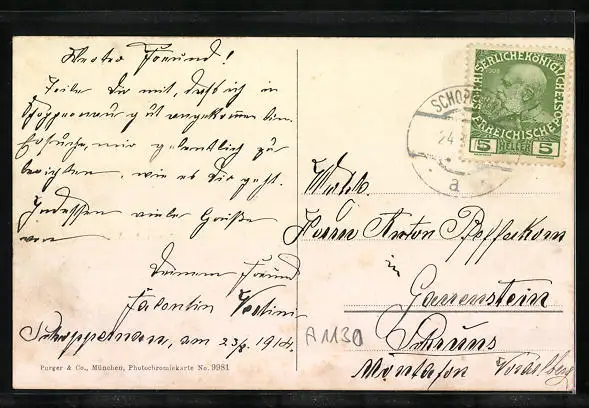 Werter Freund!
Teile Dir mit, daß ich in
Schoppernau gut angekommen bin.
Ersuche, mir gelentlich zu
berichten, wie es Dir geht.
Indessen viele Grüße
von
Deinem Freund
Schoppernau, am 23/8. 1914.
Purger & Co., München, Photochromiekarte No. 9981
K. K. POST
KAISERLICHE KÖNIGLICHE
ÖSTERREICHISCHE
5 HELLER 5
1908
SCHOPPERNAU
24
a
Wohlg.
Herrn Anton Pfefferkorn
in
Gauenstein
Schruns
Montafon Vorarlberg
A 1130